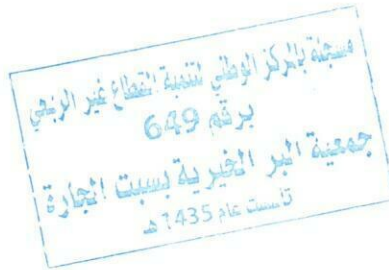 مسجلة بالمركز الوطني لتنمية القطاع غير الربحي
برقم 649
جمعية البر الخيرية بسبت الجارة
تأسست عام 1435هـ